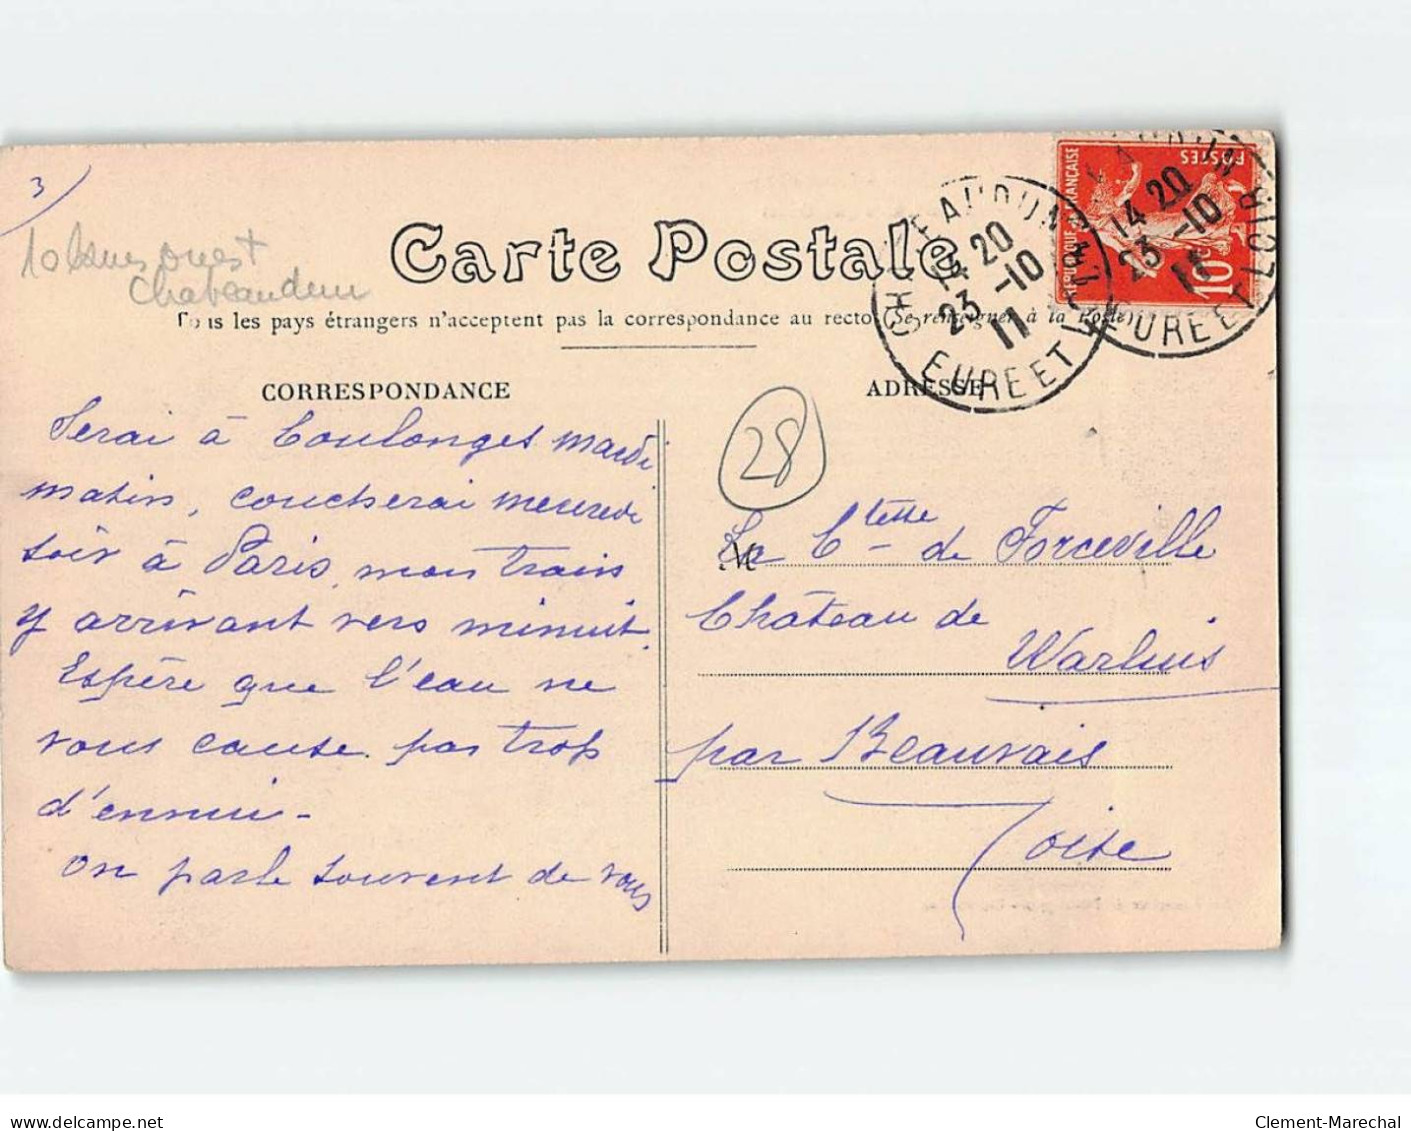 3
Chateaudun
Carte Postale
Tous les pays étrangers n'acceptent pas la correspondance au recto (Se renseigner à la Poste)
CHATEAUDUN
14 20
23 -10
11
EURE ET LOIR
14 20
23 -10
11
EURE ET LOIR
POSTES
REPUBLIQUE FRANÇAISE
10c
CORRESPONDANCE
Serai à Coulonges mardi
matin, coucherai mercredi
soir à Paris, mon train
y arrivant vers minuit.
Espère que l'eau ne
vous cause pas trop
d'ennui -
On parle souvent de vous
ADRESSE
28
La Ctesse de Forceville
Château de
Warluis
par Beauvais
Oise
delcampe.net
Clement-Marechal